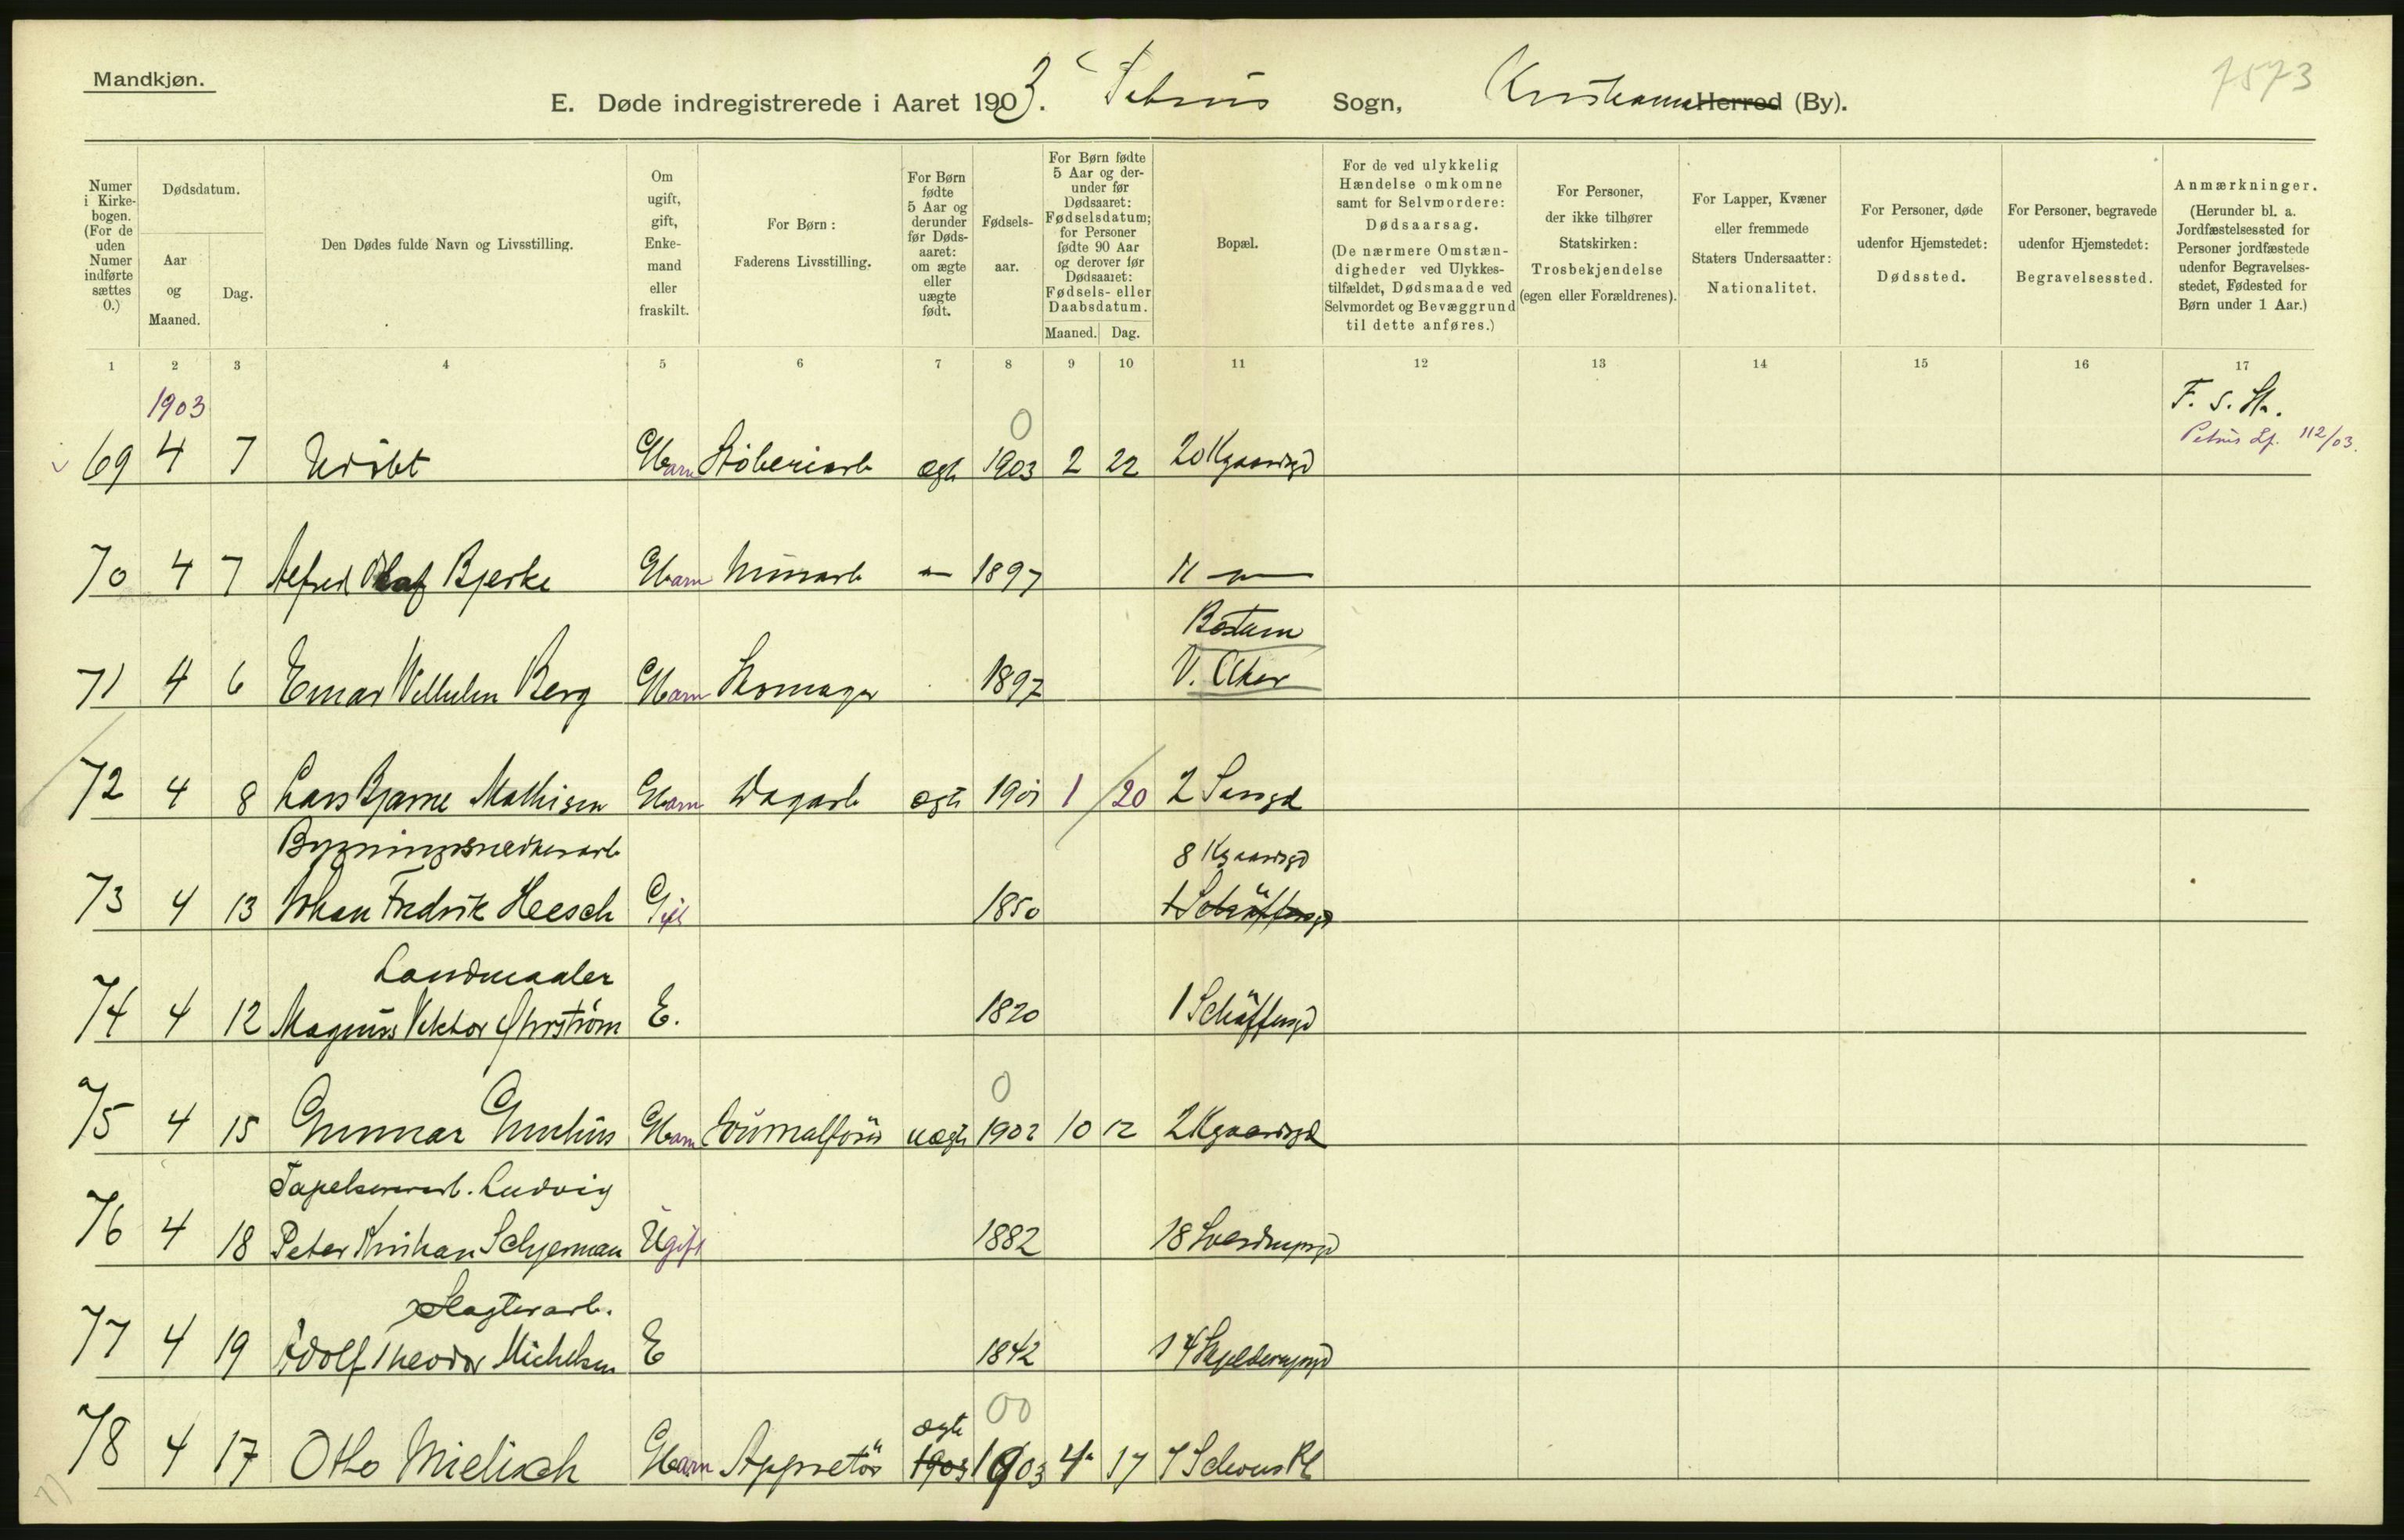 Mandkjøn.
7573
E. Døde indregistrerede i Aaret 1903. Petrus Sogn, Kristiania Herred (By).
Numer i Kirkebogen. (For de uden Numer indførte sættes 0.)
Dødsdatum.
Aar og Maaned.
Dag.
Den Dødes fulde Navn og Livsstilling.
Om ugift, gift, Enkemand eller fraskilt.
For Børn: Faderens Livsstilling.
For Børn fødte 5 Aar og derunder før Dødsaaret: om ægte eller uægte født.
Fødselsaar.
For Børn fødte 5 Aar og derunder før Dødsaaret: Fødselsdatum; for Personer fødte 90 Aar og derover før Dødsaaret: Fødsels- eller Daabsdatum.
Maaned. Dag.
Bopæl.
For de ved ulykkelig Hændelse omkomne samt for Selvmordere: Dødsaarsag. (De nærmere Omstændigheder ved Ulykkestilfældet, Dødsmaade ved Selvmordet og Bevæggrund til dette anføres.)
For Personer, der ikke tilhører Statskirken: Trosbekjendelse (egen eller Forældrenes).
For Lapper, Kvæner eller fremmede Staters Undersaatter: Nationalitet.
For Personer, døde udenfor Hjemstedet: Dødssted.
For Personer, begravede udenfor Hjemstedet: Begravelsessted.
Anmærkninger. (Herunder bl. a. Jordfæstelsessted for Personer jordfæstede udenfor Begravelsesstedet, Fødested for Børn under 1 Aar.)
1 2 3 4 5 6 7 8 9 10 11 12 13 14 15 16 17
1903
F. S. St.
0
Petrus Lf. 112/03.
69 4 7 Udøbt Barn Støberiarb ægte 1903 2 22 20 Kgaardsgd
70 4 7 Alfred Olaf Bjerke Barn Murarb — 1897 11 —
Bestum
71 4 6 Einar Vilhelm Berg Barn Skomager 1897 V. Aker
72 4 8 Lars Bjarne Mathisen Barn Dagarb ægte 1901 1 20 2
Bygningssnedkerarb
8 Kgaardsgd
73 4 13 Johan Fredrik Heesch Gift 1850 1 Schäffersgd
Landmaaler
74 4 12 Magnus Viktor E. 1820 1 Schäffersgd
0
75 4 15 Gunnar Barn uægte 1902 10 12 2 Kgaardsgd
Tapetsererarb. Ludvig
76 4 18 Peter Kristian Schjerman Ugift 1882 18 Sverdrupsgd
Slagterarb.
77 4 19 Adolf Theodor Michelsen E 1842 14
ægte 00
78 4 17 Otto Mielisch Barn Appretør 1903 1903 4 17 7 Schous Pl